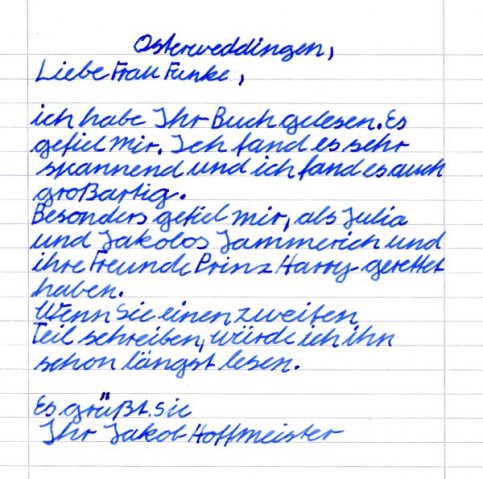 Osterweddingen,
Liebe Frau Funke,
ich habe Ihr Buch gelesen. Es
gefiel mir. Ich fand es sehr
spannend und ich fand es auch
großartig.
Besonders gefiel mir, als Julia
und Jakobs Jammerich und
ihre Freunde Prinz Harry gerettet
haben.
Wenn Sie einen zweiten
Teil schreiben, würde ich ihn
schon längst lesen.
Es grüßt Sie
Ihr Jakob Hoffmeister